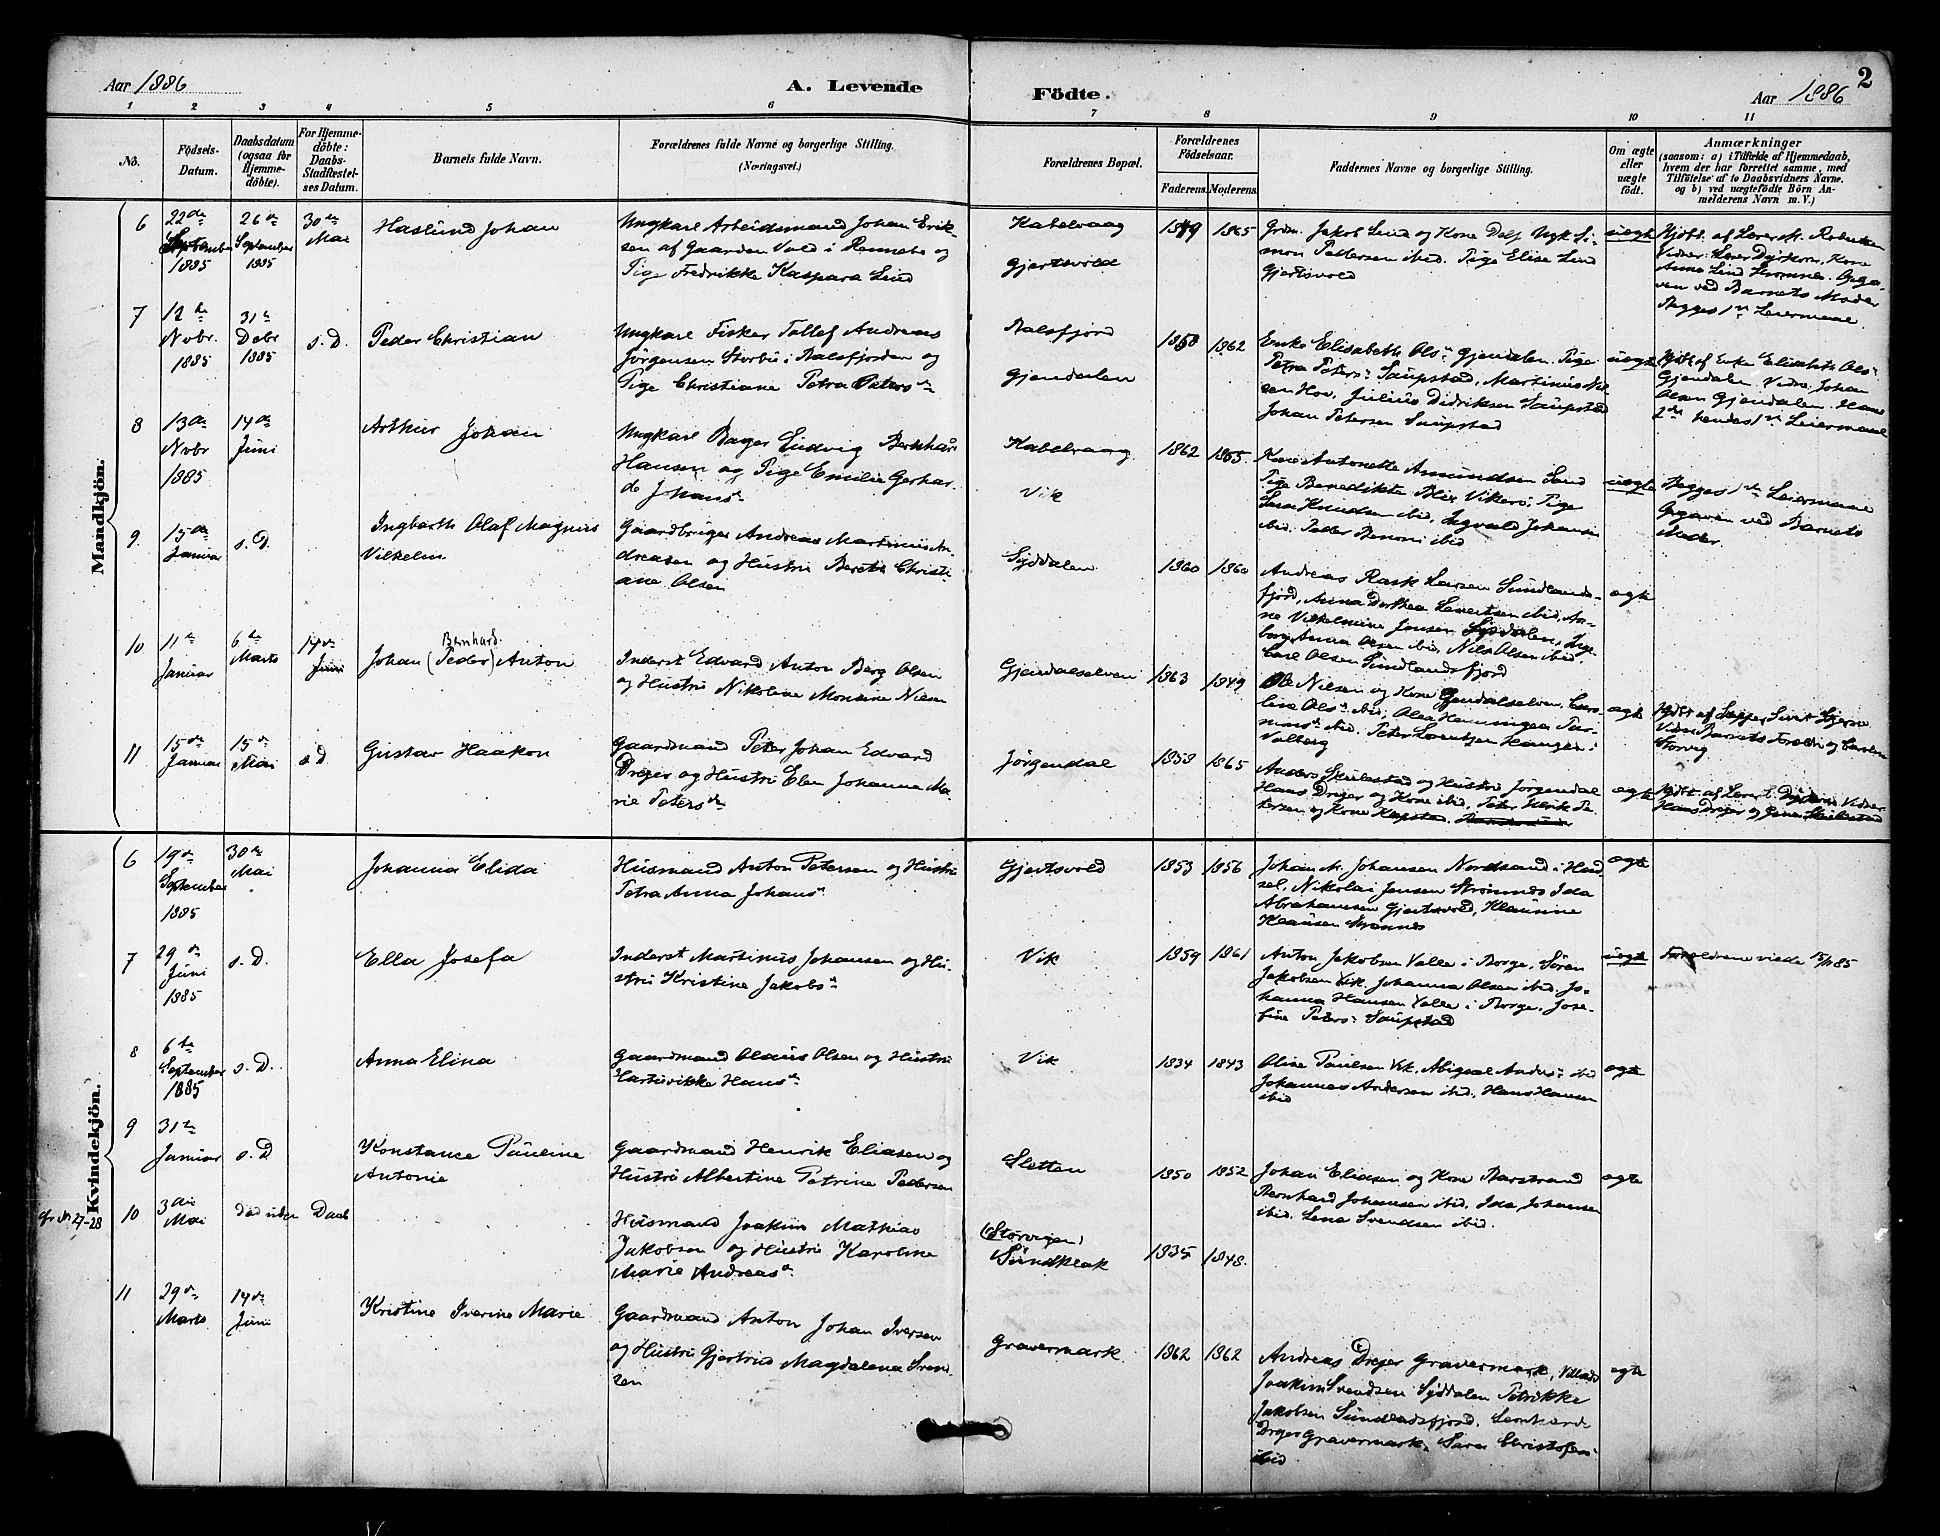 Aar 1886
A. Levende
Födte.
Aar 1886
2
1 2 3 4 5 6 7 8 9 10 11
No.
Födsels-Datum.
Daabsdatum (ogsaa for Hjemme-döbte).
For Hjemme-döbte: Daabs-Stadfæstel-ses Datum.
Barnets fulde Navn.
Forældrenes fulde Navne og borgerlige Stilling.
(Næringsvei.)
Forældrenes Bopæl.
Forældrenes Födselsaar.
Faderens. Moderens.
Faddernes Navne og borgerlige Stilling.
Om ægte eller uægte födt.
Anmærkninger
(saasom: a) i Tilfælde af Hjemmedaab,
hvem der har forrettet samme, med
Tilföielse af to Daabsvidners Navne.
og b) ved uægtefödte Börn An-
melderens Navn m. V.)
Mandkjön.
6 22de September 1885
26de September 1885
30te Mai
Haslund Johan
Ungkarl Arbeidsmand Johan Erik-
sen af Gaarden Vold i Rennebo og
Pige Fredrikke Kaspara Lind
Kabelvaag
Gjertsvold
1849 1865
Grdm. Jakob Lind og Kone Dolf Ungk Si-
mon Pedersen ibid. Pige Elise Lind
Gjertsvold
uægte
Hjdbt. af Lærer
Vidner: Lærer Dyrkorn, Kone
Anna Lind Opga-
ven ved Barnets Moder
Begges 1ste Leiermaal.
7 12te Novbr. 1885
31te Debr 1885
s. D.
Peder Christian
Ungkarl Fisker Tollef Andreas
Jörgensen Storbö i Balsfjorden og
Pige Christiane Petra Petersdr
Balsfjord
Gjendalen
1858 1862
Enke Elisabeth Olsdr Gjendalen. Pige
Petra Petersdr Saupstad, Martinus Nil-
sen Hov, Julius Didriksen Saupstad
Johan Petersen Saupstad
uægte
Hjdbt af Enke Elisabeth Olsdr
Gjendalen. Vidne: Johan
Olsen Gjendalen. Hans
2det hendes 1ste Leiermaal
8 13de Nvbr 1885
14de Juni
Arthur Johan
Ungkarl Bager Ludvig Bernhard
Hansen og Pige Emilie Gerhar-
da Johansdr
Kabelvaag
Vik
1862 1865
Kone Antonette Amundsen Sund
Pige Benedikte Blix Vikerö, Pige
Sara Knudsen ibid, Ingvald Johansen
ibid. Peder Benoni ibid
uægte
Begges 1ste Leiermaal
Opgaven ved Barnets
Moder.
9 15de Januar
s. D.
Ingbarth Olaf Magnus
Vilhelm
Gaardbruger Andreas Martinus An-
dreasen og Hustru Berethe Christi-
ane Olsen
Syddalen
1860 1860
Andreas Rask Larsen Sundlands-
fjord, Anna Dorthea Levertsen ibid, An-
ne Vilhelmine Jensen Syddalen, Inge-
borg Anna Olsen ibid, Nils Olsen ibid.
Carl Olsen Sundlandsfjord
ægte
10 11te Januar
6te Marts
14de Juni
Bernhard
Johan (Peder) Anton
Inderst Edvard Anton Berg Olsen
og Hustru Nikoline Monsine Nilsen
Gjendalselven
1863 1849
Ole Nilsen og Kone Gjendalselven, Caro-
line Olsdr ibid, Olea Henningea Ras-
musdr ibid. Peter Lorentzen Hangen i
Valberg
ægte
Hjdbt af Sivert Stjerne
Vidne Barnets Forældre og
Storvig
11 15de Januar
15de Mai
s. D
Gustav Haakon
Gaardmand Peter Johan Edvard
Dreyer og Hustru Elen Johanna Ma-
rie Petersdr
Jörgendal
1858 1865
Anders Skulestad og Hustru Jörgendal
Hans Dreyer og Kone ibid, Peter Fredrik Pe-
tersen og Kone Kopstad.
ægte
Hjdbt. af Lærer Vidner
Hans Dreyer og Skulestad
Kvindekjön.
6 19de September 1885
30te Mai
Johanna Elida
Husmand Anton Petersen og Hustru
Petra Anna Johansdr
Gjertsvold
1853 1856
Johan M. Johansen Nordsand i Had-
sel, Nikolai Jensen Strömnes Ida
Abrahamsen Gjertsvold, Klausine
Klausen Strömnes
ægte
7 29de Juni 1885
s. D.
Ella Josefa
Inderst Martinus Johansen og Hu-
stru Kristine Jakobsdr
Vik
1859 1861
Anton Jakobsen Valle i Borge, Sören
Jakobsen Vik. Johanna Olsen ibid. Jo-
hanna Hansen Valle i Borge, Jose-
fine Petersdr Saupstad
uægte
Forældrene viede 15/11 85
8 6te September 1885
s. D.
Anna Elina
Gaardmand Olaus Olsen og Hustru
Hartvikke Hansdr
Vik
1834 1843
Oline Paulsen Vik, Abigael Andersdr ibid
Johannes Andersen ibid, Hans Hansen
ibid
ægte
9 31te Januar
s. D
Konstance Pauline
Antonie
Gaardmand Henrik Eliasen og
Hustru Albertine Petrine Pedersen
Sletten
1850 1852
Johan Eliasen og Kone Barstrand
Bernhard Johansen ibid. Ida Johansen
ibid. Lena Svendsen ibid.
ægte
cfr No 27-28
10 3die Mai
Död uden Daab
Husmand Joakim Mathias
Jakobsen og Hustru Karoline
Marie Andreasdr
(Storvigen)
Sundklak
1835 1848.
11 29de Marts
14de Juni
Kristine Iverine Marie
Gaardmand Anton Johan Iversen
og Hustru Gjertrud Magdalena Svend-
sen
Gravermark
1862 1862
Andreas Dreyer Gravermark, Villads
Joakim Svendsen Syddalen Petrikke
Jakobsen Sundlandsfjord. Leonharde
Dreyer Gravermark. Sara Christofersdr
ibid
ægte